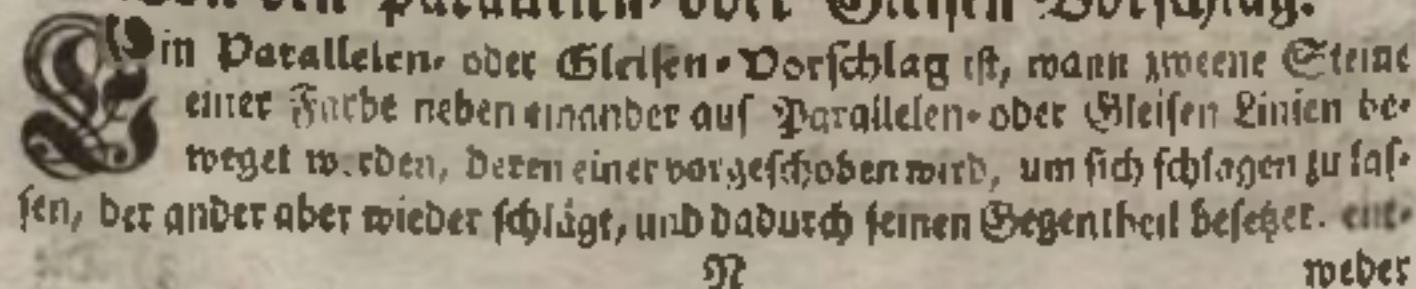 den Parallelen- oder Gleisen Vorschlag.
Ein Parallelen- oder Gleisen-Vorschlag ist, wann zweene Steine
einer Farbe neben einander auf Parallelen- oder Gleisen Linien be-
weget werden, deren einer vorgeschoben wird, um sich schlagen zu las-
sen, der ander aber wieder schlägt, und dadurch seinen Gegentheil besetzet. ent-
N weder